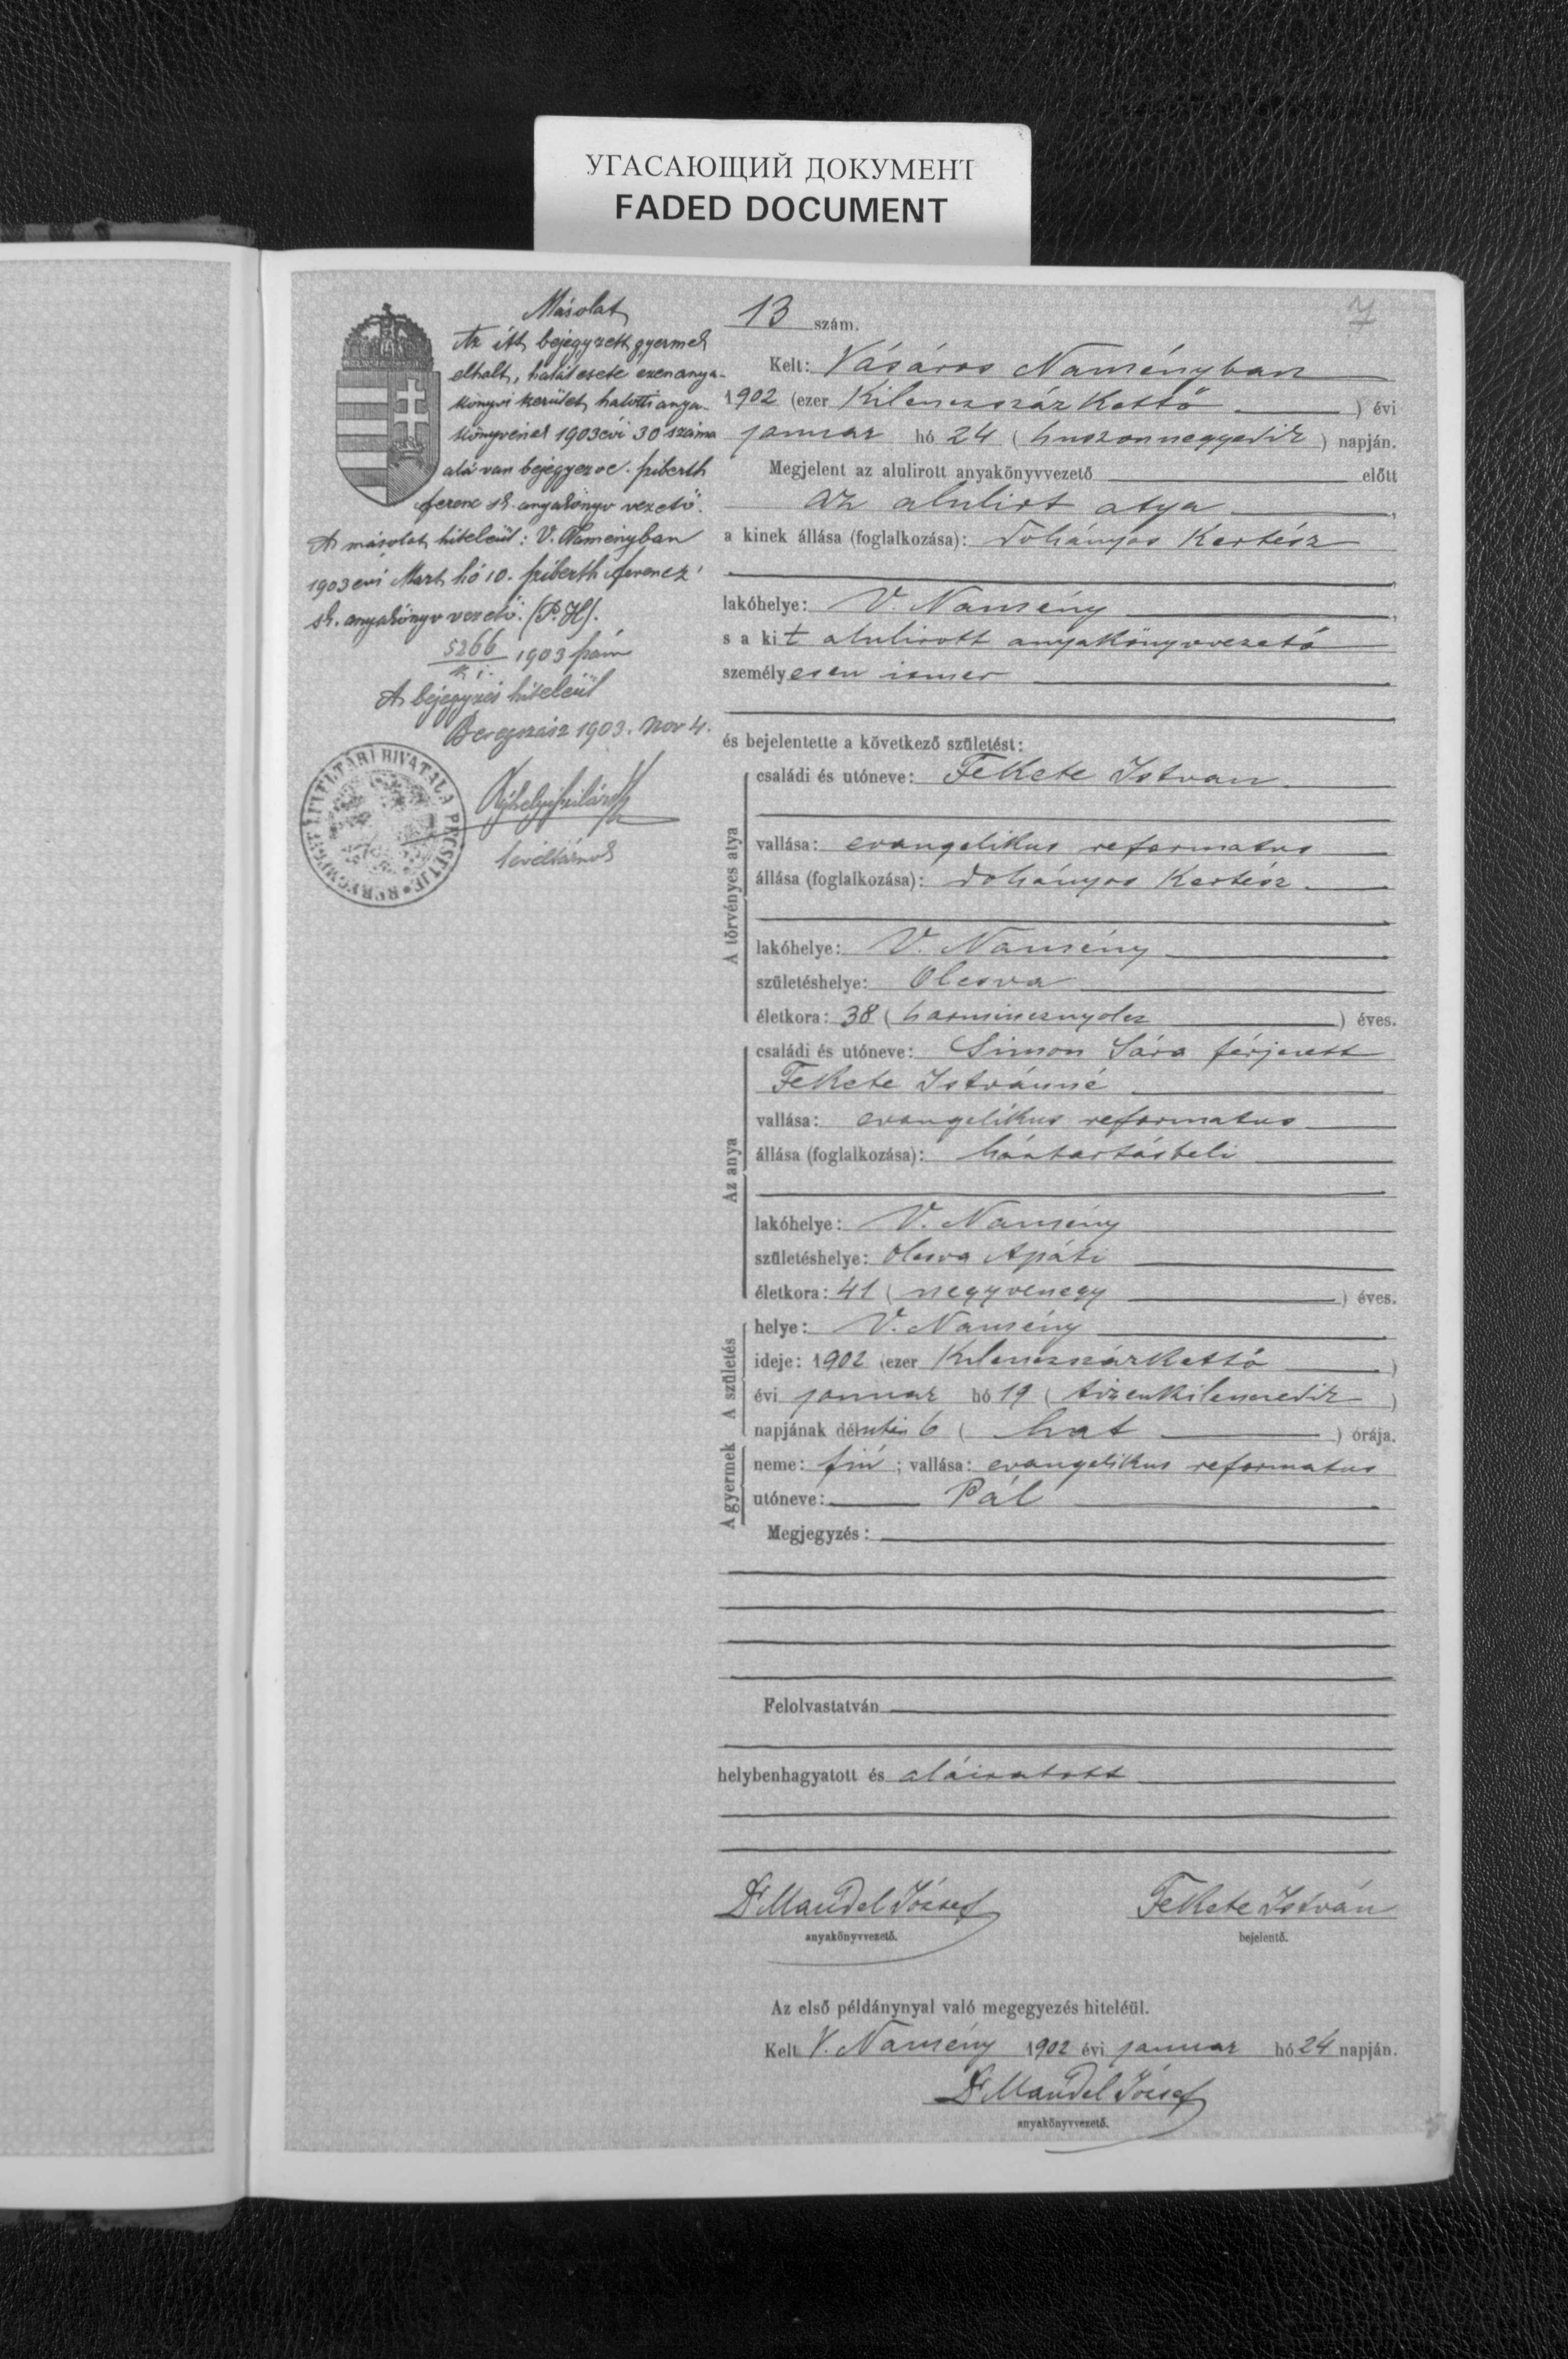 УГАСАЮЩИЙ ДОКУМЕНТ
FADED DOCUMENT
7
Másolat
Az itt bejegyzett gyermek
elhalt, halálesete ezen anya-
könyvi kerület halotti anya-
könyvének 1903 évi 30 száma
alá van bejegyezve.
Ferenc sk. anyakönyv vezető.
A másolat hiteleül: V. Naményban
1903 évi Mart. hó 10. Ferencz
sk. anyakönyv vezető. (P. H).
5266 1903 szám
A bejegyzés hiteleül
Beregszász 1903. Nov 4.
levéltárnok
LEVÉLTÁRI HIVATALA PECSÉTJE
13 szám.
Kelt: Vásáros Naményban
1902 (ezer Kilenczszáz Kettő ) évi
januar hó 24 ( huszonnegyedik ) napján.
Megjelent az alulirott anyakönyvvezető előtt
az alulirt atya ,
a kinek állása (foglalkozása): dohányos Kertész
lakóhelye: V. Namény ,
s a kit alulirott anyakönyvvezető
személyesen ismer
és bejelentette a következő születést:
A törvényes atya
családi és utóneve: Fekete Istvan
vallása: evangelikus reformatus
állása (foglalkozása): dohányos Kertész
lakóhelye: V. Namény
születéshelye: Olcsva
életkora: 38 ( harmincznyolcz ) éves.
Az anya
családi és utóneve: Simon Sára férjezett
Fekete Istvánné
vallása: evangelikus reformatus
állása (foglalkozása): háztartásbeli
lakóhelye: V. Namény
születéshelye: Olcsva Apáti
életkora: 41 ( negyvenegy ) éves.
A születés
helye: V. Namény
ideje: 1902 (ezer Kilenczszáz Kettő )
évi januar hó 19 ( tizenkilenczedik )
napjának délután 6 ( hat ) órája.
A gyermek
neme: fiú ; vallása: evangelikus reformatus
utóneve: Pál
Megjegyzés:
Felolvastatván
helybenhagyatott és aláiratott
Dr Mandel József Fekete István
anyakönyvvezető. bejelentő.
Az első példánynyal való megegyezés hiteléül.
Kelt V. Namény 1902 évi januar hó 24 napján.
Dr Mandel József
anyakönyvvezető.